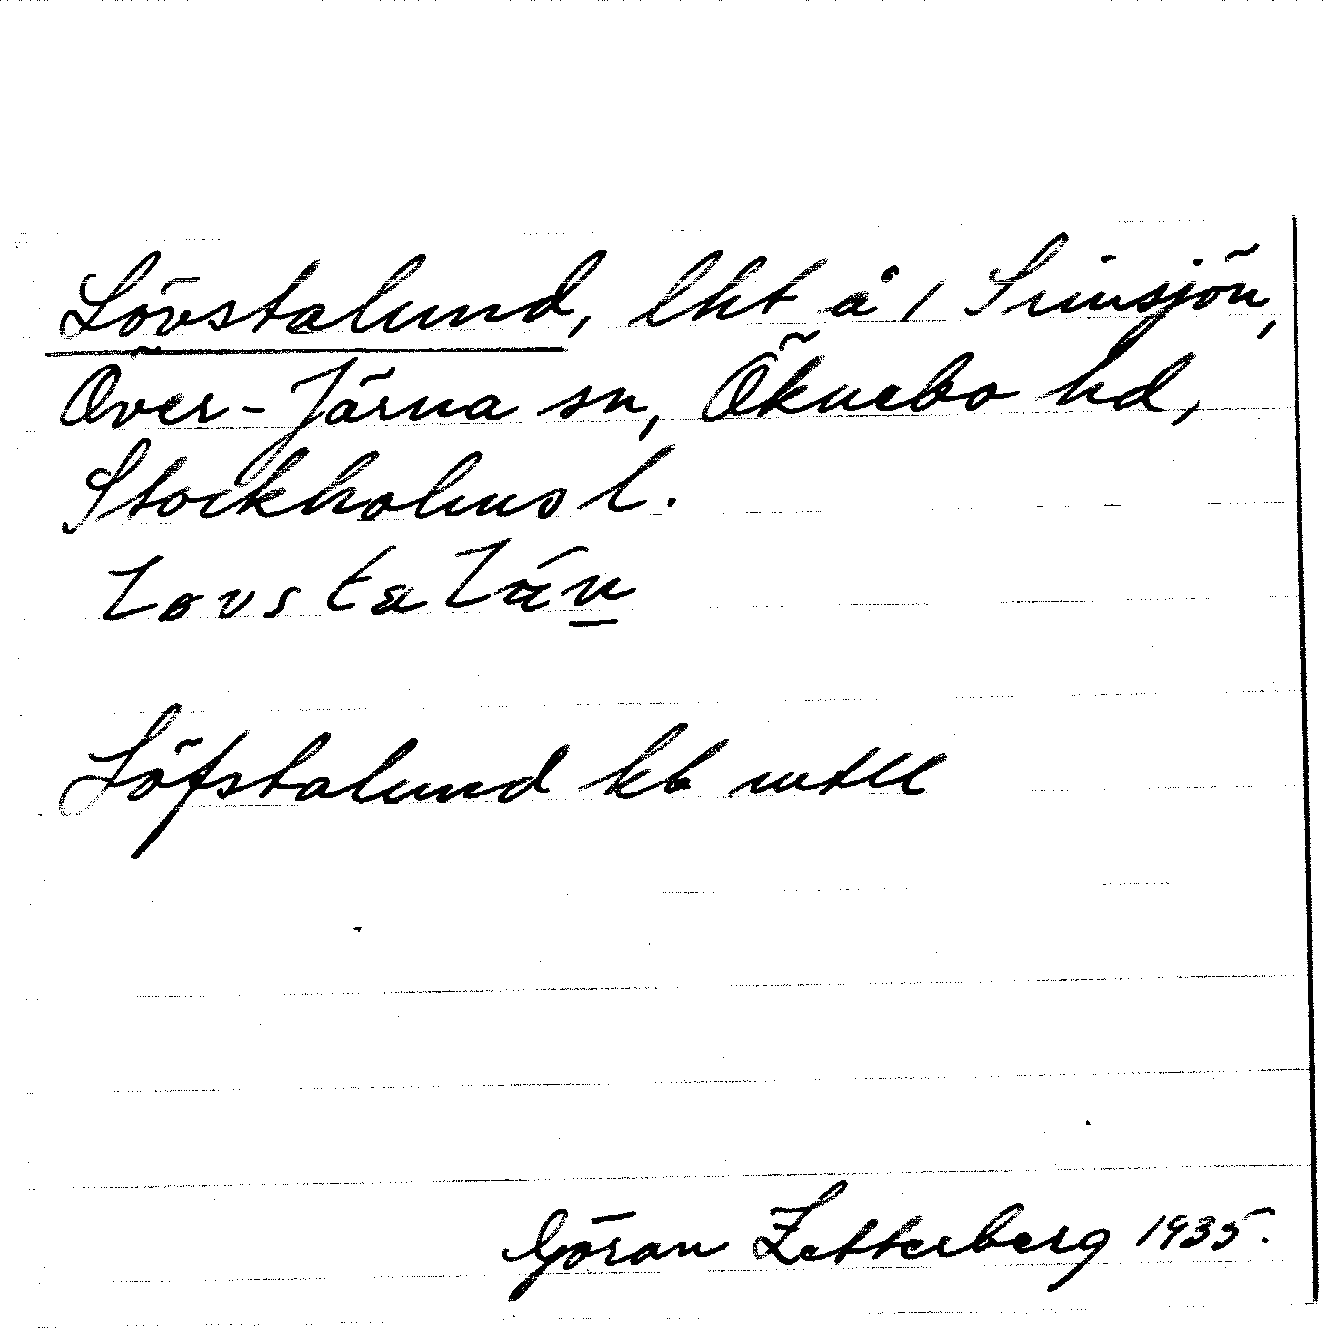 Lövstalund, lht å 1 Simsjön,
Över-Järna sn, Öknebo hd,
Stockholms l.
Löfstalund kb mtll
Göran Zetterberg 1935.